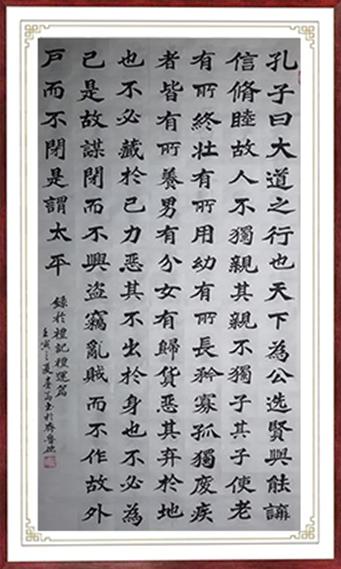 孔子曰大道之行也天下為公选賢與能講
信脩睦故人不獨親其親不獨子其子使老
有所終壯有所用幼有所長矜寡孤獨廢疾
者皆有所養男有分女有歸貨惡其弃於地
也不必藏於己力惡其不出於身也不必為
己是故謀閉而不興盜竊亂賊而不作故外
戶而不閉是謂太平
錄於禮記禮運篇
壬寅之夏